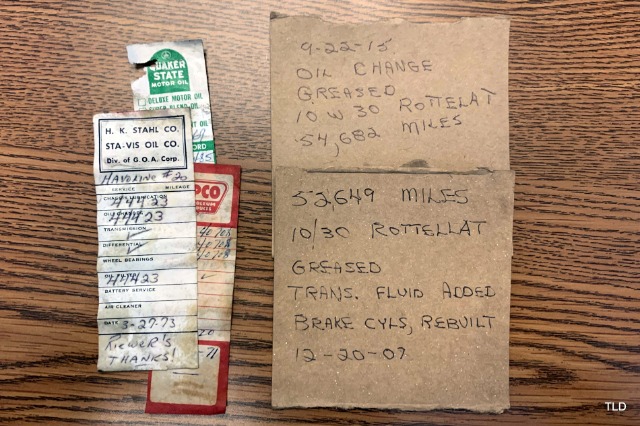 QUAKER
STATE
MOTOR OIL
DELUXE MOTOR OIL
H. K. STAHL CO.
STA-VIS OIL CO.
Div. of G.O.A. Corp.
HAVOLINE #20
SERVICE MILEAGE
44423
44423
TRANSMISSION
DIFFERENTIAL
WHEEL BEARINGS
OIL 44423
BATTERY SERVICE
AIR CLEANER
DATE 3-27-73
THANKS!
20
-71
9-22-15
OIL CHANGE
GREASED
10 W 30 ROTTELAT
54,682 MILES
52,649 MILES
10/30 ROTTELLAT
GREASED
TRANS. FLUID ADDED
BRAKE CYLS, REBUILT
12-20-07
TLD